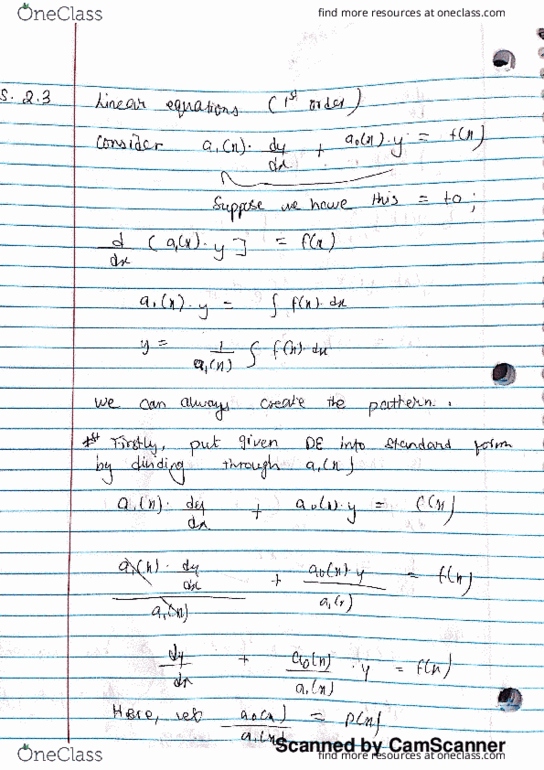 OneClass
find more resources at oneclass.com
S. 2.3 Linear equations (1st order)
Consider a₁(x)· dy/dx + a₀(x)·y = f(x)
Suppose we have this = to;
d/dx [a₁(x)·y] = f(x)
a₁(x)·y = ∫ f(x)·dx
y = 1/a₁(x) ∫ f(x)·dx
we can always create the pattern.
Firstly, put given DE into standard form
by dividing through a₁(x)
a₁(x)· dy/dx + a₀(x)·y = f(x)
a₁(x)· dy/dx / a₁(x) + a₀(x)·y / a₁(x) = f(x)
dy/dx + a₀(x)/a₁(x) ·y = f(x)
Here, let a₀(x)/a₁(x) = P(x)
Scanned by CamScanner
OneClass
find more resources at oneclass.com